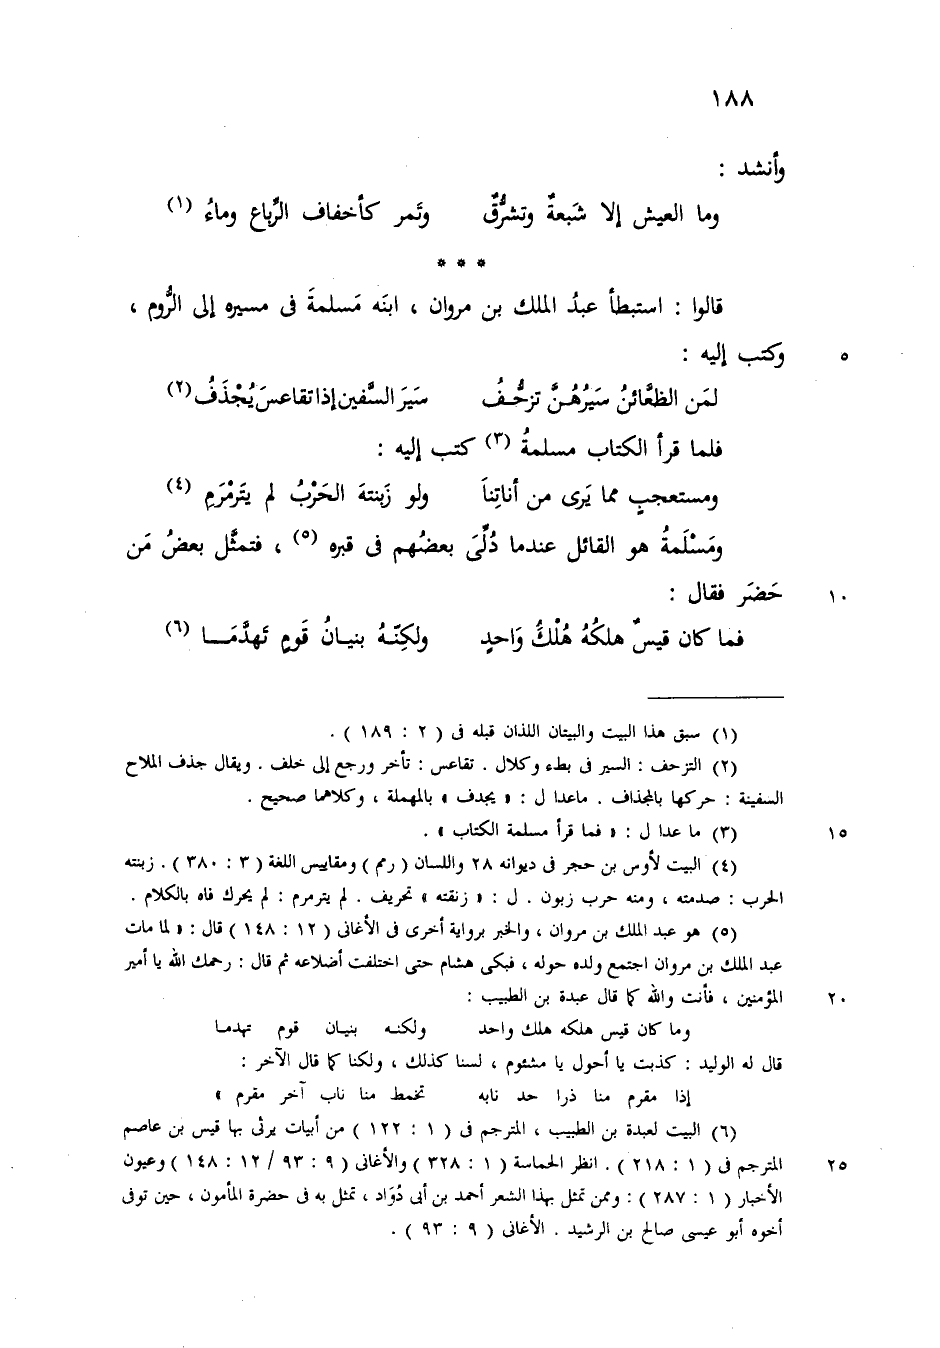 ١٨٨
وأنشد :
وما العيش إلا شَبعةٌ وتشرُّقٌ وتَمر كأخفاف الرِّباع وماءُ (١)
* * *
قالوا : استبطأ عبدُ الملك بن مروان ، ابنَه مَسلمةَ فى مسيره إلى الرُّوم ،
وكتب إليه : ٥
لمَن الظَّعَائنُ سَيَرُهُنَّ تزحُّفُ سَيَرَ السَّفين إذا تقاعسَ يُجْذَفُ (٢)
فلما قرأ الكتاب مسلمةُ (٣) كتب إليه :
ومستعجبٍ مما يَرى من أناتِناَ ولو زَبنتهَ الحَرْبُ لم يتَرمْرَمِ (٤)
ومَسْلَمةُ هو القائل عندما دُلِّىَ بعضُهم فى قبره (٥) ، فتمثَّل بعضُ مَن
حَضَر فقال : ١٠
فما كان قيسٌ هلكُهُ هُلْكُ وَاحدٍ ولكِنّهُ بنيانُ قَومٍ تَهدَّمَا (٦)
(١) سبق هذا البيت والبيتان اللذان قبله فى ( ٢ : ١٨٩ ) .
(٢) التزحف : السير فى بطء وكلال . تقاعس : تأخر ورجع إلى خلف . ويقال جذف الملاح
السفينة : حركها بالمجذاف . ماعدا ل : « يجدف » بالمهملة ، وكلاهما صحيح .
(٣) ما عدا ل : « فما قرأ مسلمة الكتاب » . ١٥
(٤) البيت لأوس بن حجر فى ديوانه ٢٨ واللسان ( رمم ) ومقاييس اللغة ( ٣ : ٣٨٠ ) . زبنته
الحرب : صدمته ، ومنه حرب زبون . ل : « زنقته » تحريف . لم يترمرم : لم يحرك فاه بالكلام .
(٥) هو عبد الملك بن مروان ، والخبر برواية أخرى فى الأغانى ( ١٢ : ١٤٨ ) قال : « لما مات
عبد الملك بن مروان اجتمع ولده حوله ، فبكى هشام حتى اختلفت أضلاعه ثم قال : رحمك الله يا أمير
المؤمنين ، فأنت والله كما قال عبدة بن الطبيب : ٢٠
وما كان قيس هلكه هلك واحد ولكنه بنيان قوم تهدما
قال له الوليد : كذبت يا أحول يا مشئوم ، لسنا كذلك ، ولكنا كما قال الآخر :
إذا مقرم منا ذرا حد نابه تخمط منا ناب آخر مقرم »
(٦) البيت لعبدة بن الطبيب ، المترجم فى ( ١ : ١٢٢ ) من أبيات يرثى بها قيس بن عاصم
المترجم فى ( ١ : ٢١٨ ) . انظر الحماسة ( ١ : ٣٢٨ ) والأغانى ( ٩ : ٩٣ / ١٢ : ١٤٨ ) وعيون ٢٥
الأخبار ( ١ : ٢٨٧ ) : وممن تمثل بهذا الشعر أحمد بن أبى دُوَاد ، تمثل به فى حضرة المأمون ، حين توفى
أخوه أبو عيسى صالح بن الرشيد . الأغانى ( ٩ : ٩٣ ) .